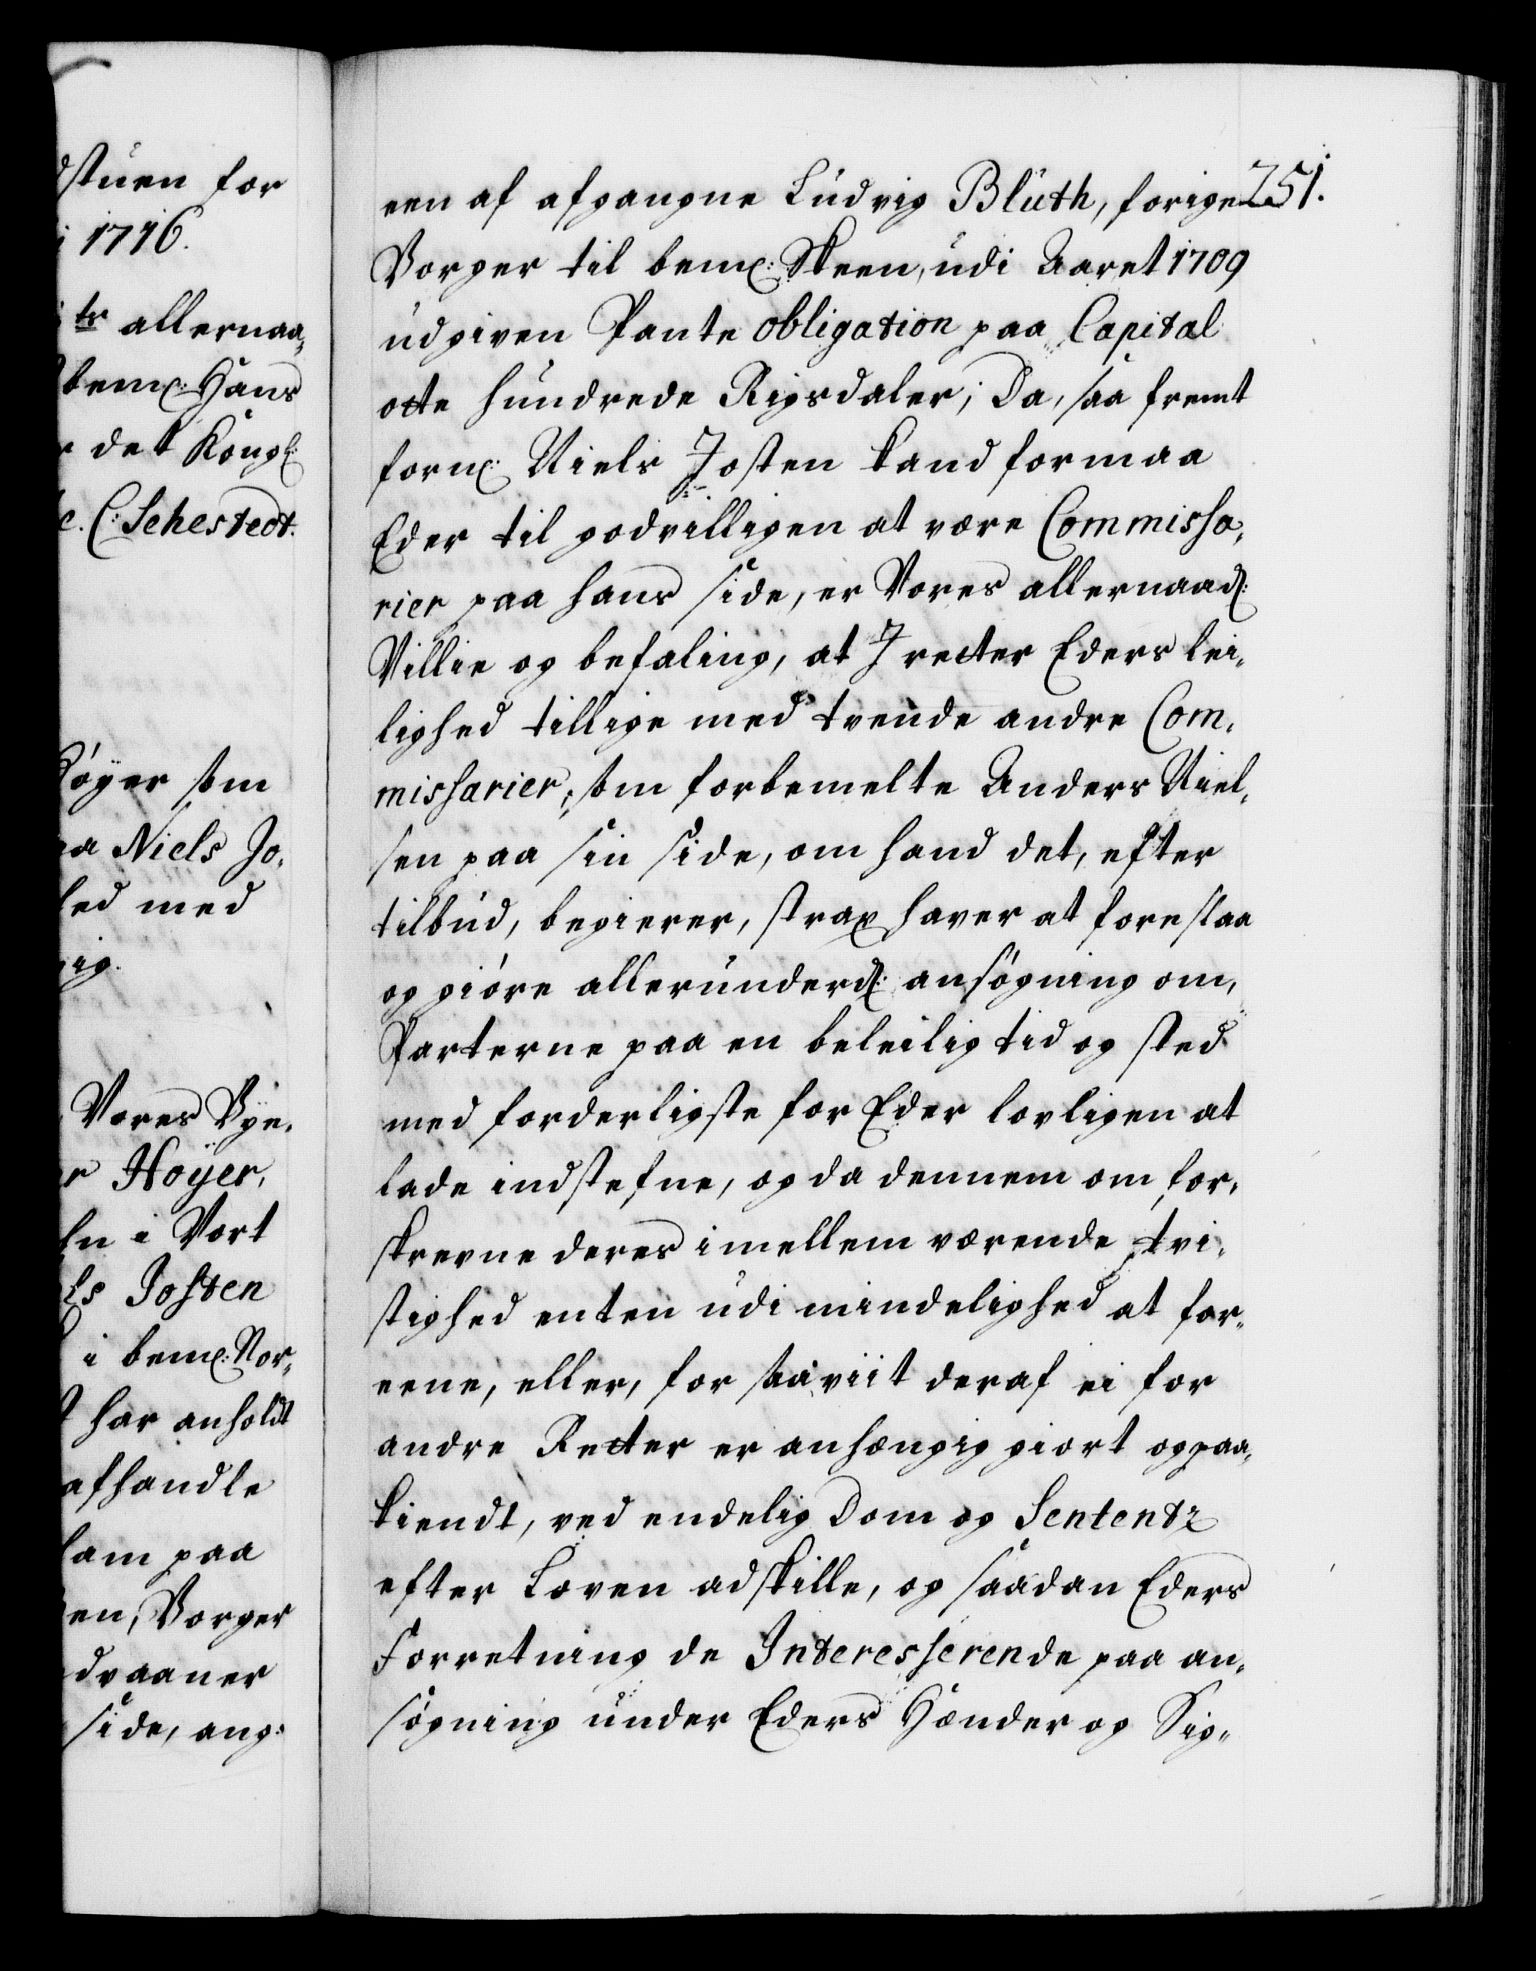 dstuen for
i 1716.
ts allernaa„
bem: Hans
r det Kongl:
e. C: Sehestedt.
Köyer som
aa Niels Jo„
led med
gig.
Vores Bye„
r Höyer,
ln i Vort
ls Josten
i bem: Nor„
har anholdt
afhandle
lam paa
en, Borger
dvaaner
side, ang:
251.
een af afgangne Ludvig Blüth, forige
Borger til bem: Skeen, udi Aaret 1709
udgiven Pante obligation paa Capital
otte hundrede Rigsdaler; Da, saa fremt
forn: Niels Josten kand formaa
Eder til godvilligen at være Commissa„
rier paa hans side, er Vores allernaad:
Villie og befaling, at I retter Eders lei„
lighed tillige med tvende andre Com„
missarier, som forbemelte Anders Niel„
sen paa sin side, om hand det, efter
tilbud, begierer, strax haver at foreslaa
og giöre allerunderd: ansögning om,
Parterne paa en beleilig tid og sted
med forderligste for Eder lovligen at
lade indstefne, og da dennem om for„
skrevne deres imellem værende tvi„
stighed enten udi mindelighed at for„
eene, eller, for saaviit deraf ei for
andre Retter er anhængig giort og paa„
kiendt, ved endelig Dom og Sententz
efter Loven adskille, og saadan Eders
Forretning de Interesserende paa an„
sögning under Eders Hænder og Sig„